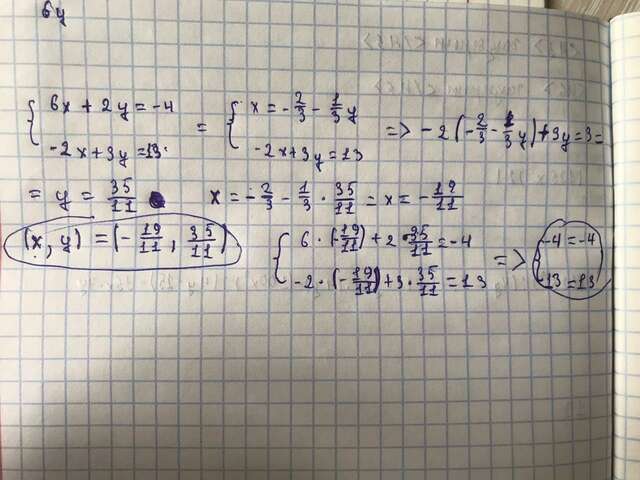 6y
{ 6x + 2y = -4 = { x = -2/3 - 1/3 y => -2(-2/3 - 1/3 y) + 3y = 3 =
{ -2x + 3y = 13 { -2x + 3y = 13
= y = 35/11 x = -2/3 - 1/3 · 35/11 = x = -19/11
(x, y) = (-19/11, 35/11) { 6 · (-19/11) + 2 · 35/11 = -4 => { -4 = -4
{ -2 · (-19/11) + 3 · 35/11 = 13 { 13 = 13